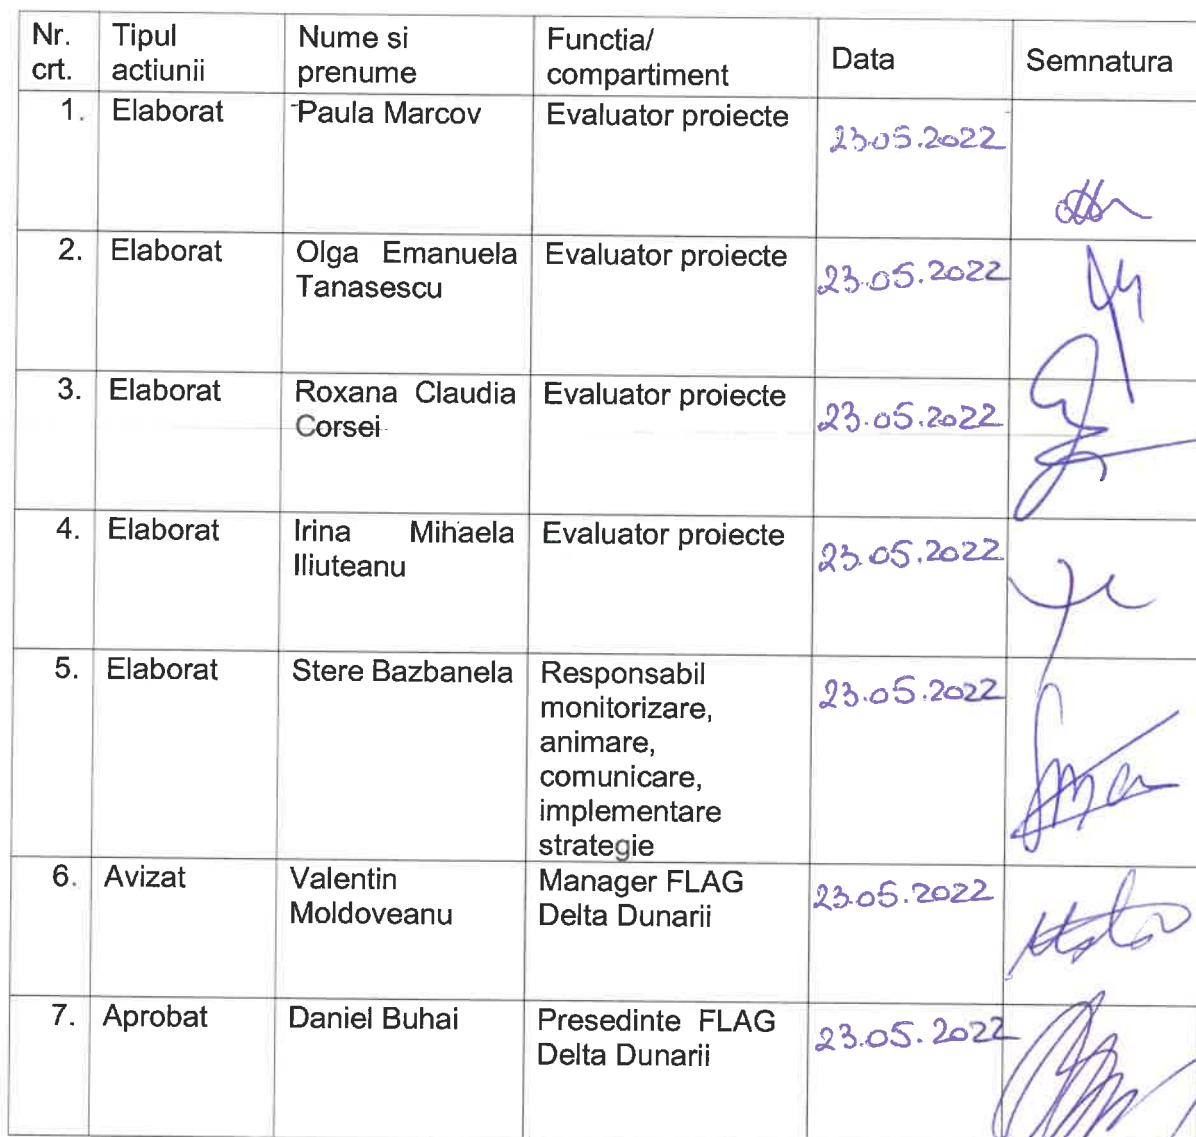 Nr. crt. Tipul actiunii Nume si prenume Functia/ compartiment Data Semnatura
1. Elaborat Paula Marcov Evaluator proiecte 23.05.2022
2. Elaborat Olga Emanuela Tanasescu Evaluator proiecte 23.05.2022
3. Elaborat Roxana Claudia Corsei Evaluator proiecte 23.05.2022
4. Elaborat Irina Mihaela Iliuteanu Evaluator proiecte 23.05.2022
5. Elaborat Stere Bazbanela Responsabil monitorizare, animare, comunicare, implementare strategie 23.05.2022
6. Avizat Valentin Moldoveanu Manager FLAG Delta Dunarii 23.05.2022
7. Aprobat Daniel Buhai Presedinte FLAG Delta Dunarii 23.05.2022